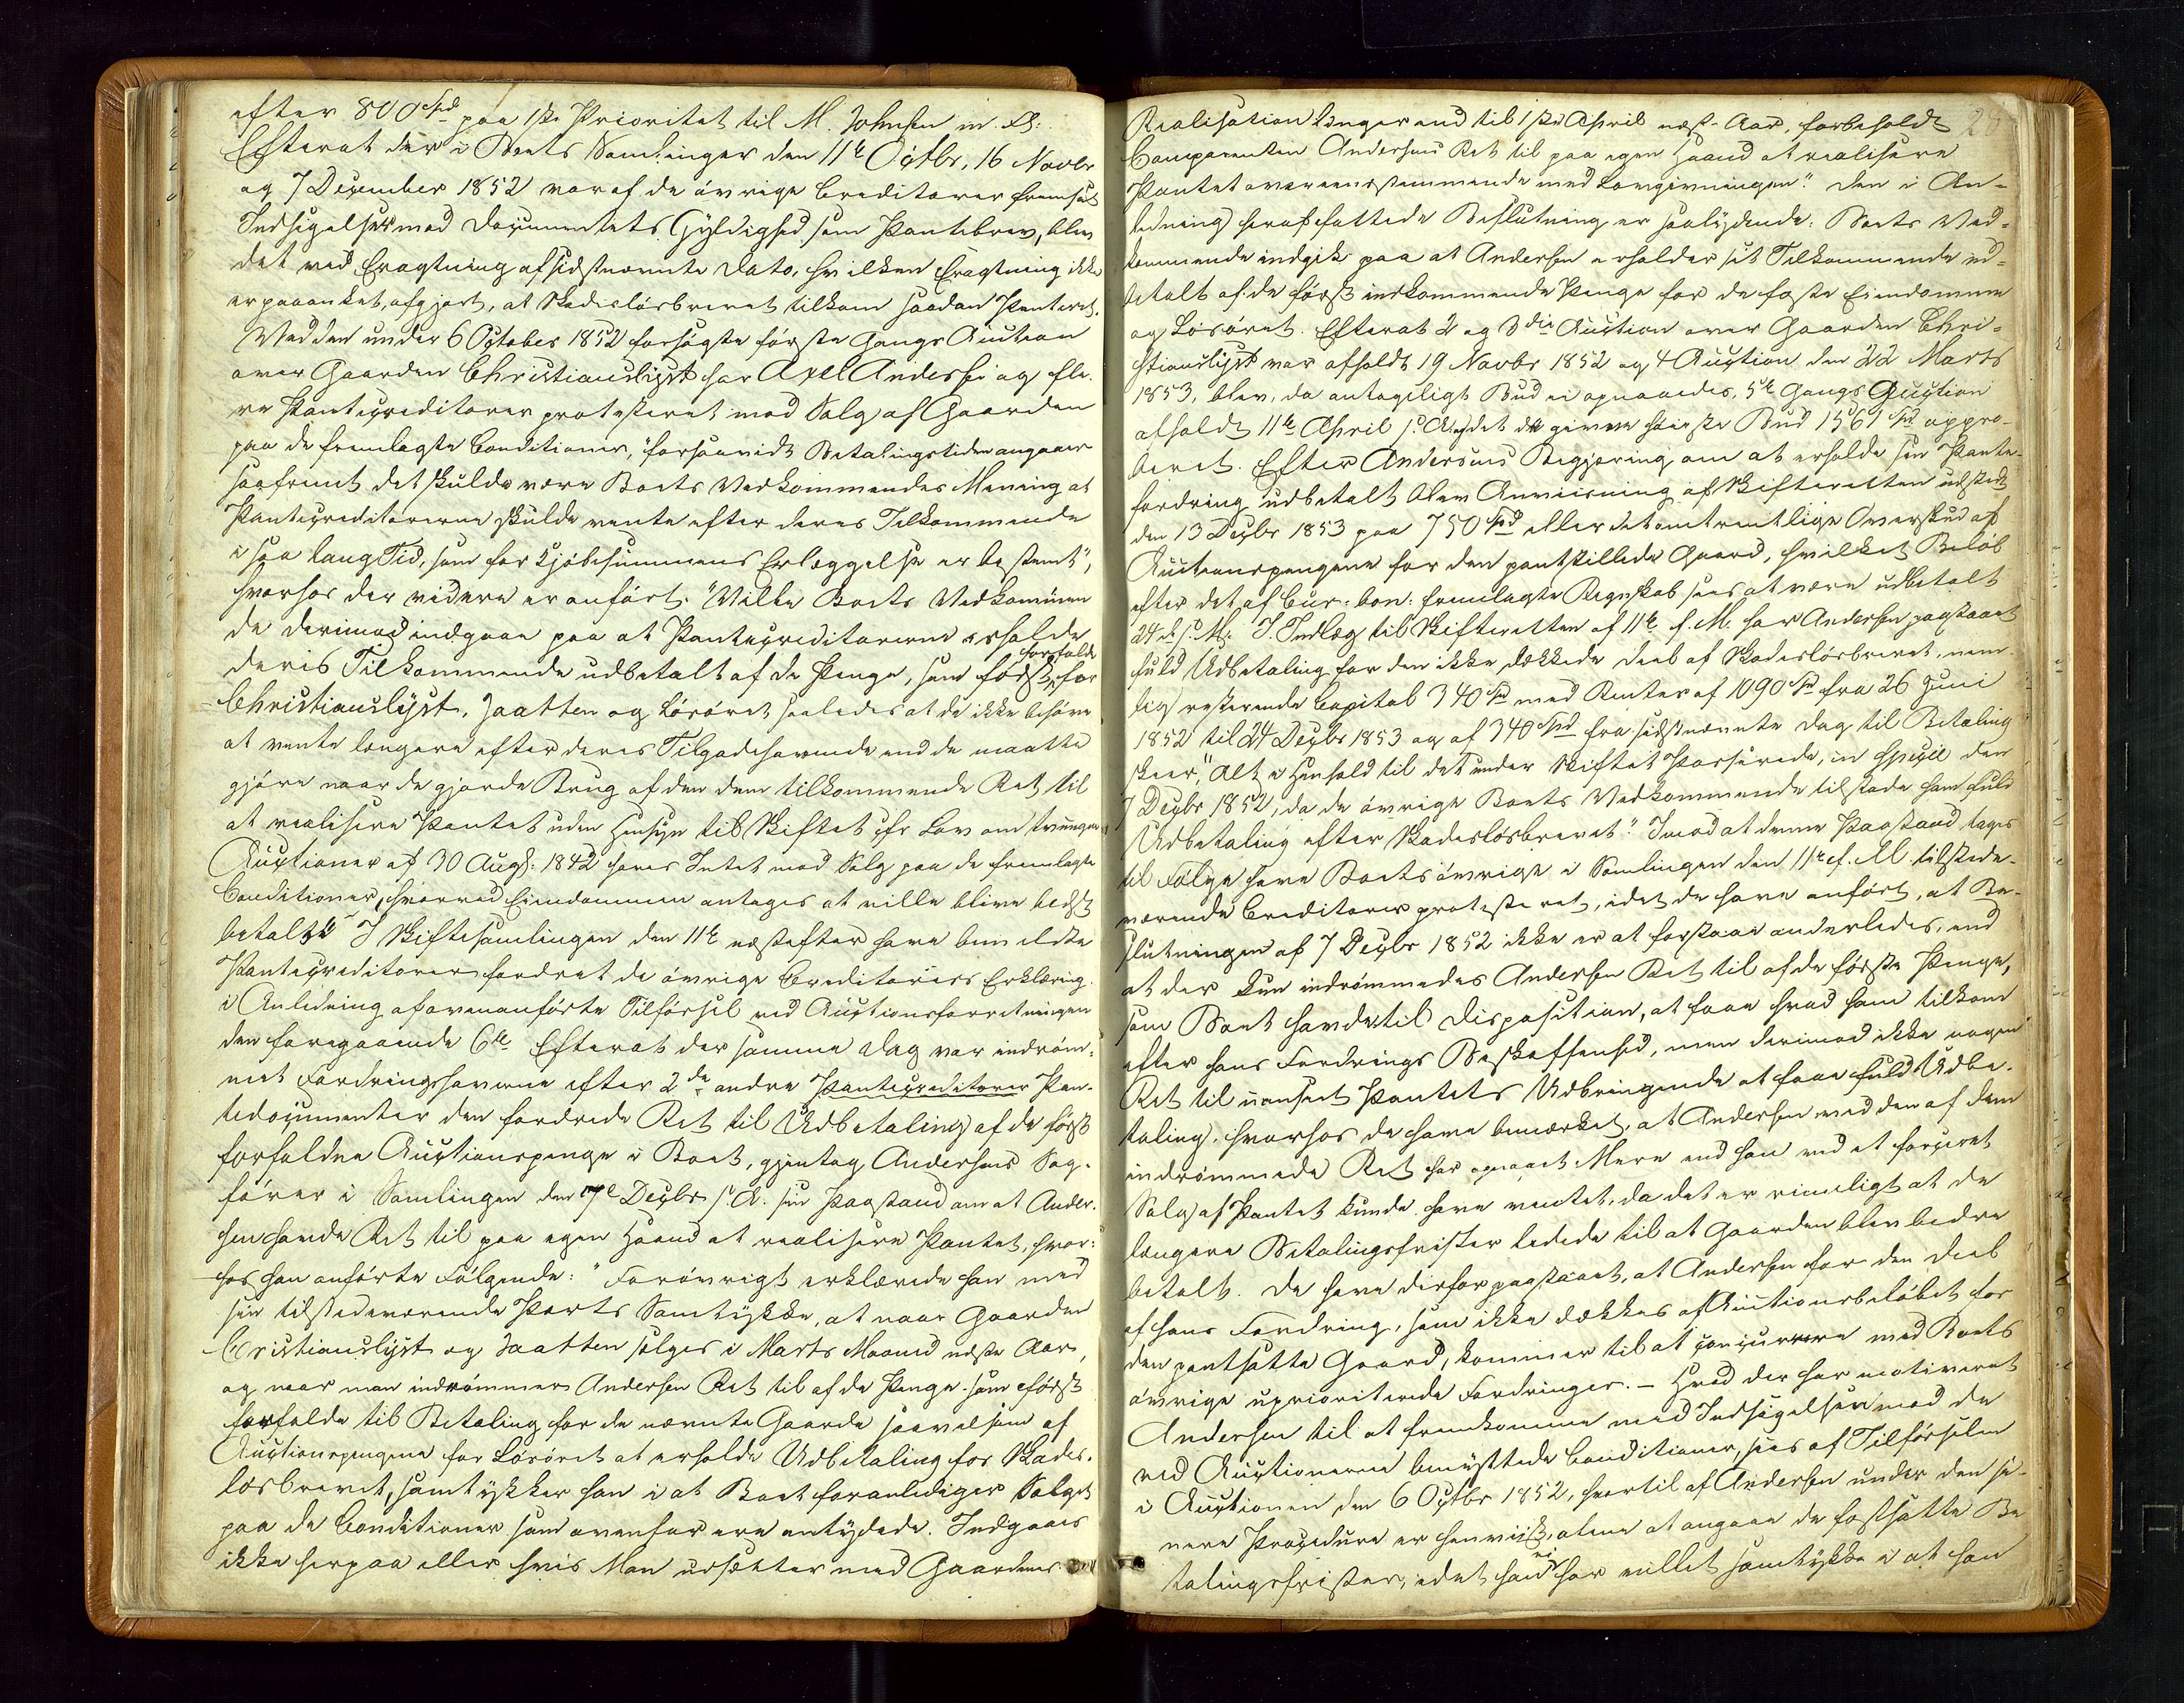 efter 800 Spd paa 1ste Prioritet til M. Johnsen m. Fl:
Efterat der i Boets Samlinger den 11te Octbr, 16 Novbr
og 7 December 1852 var af de øvrige Creditorer fremsat
Indsigelser mod Documentets Gyldighed som Pantebrev, blev
det ved Eragtning af sidstnævnte Dato, hvilken Eragtning ikke
er paaanket, afgjort, at Skadesløsbrevet tilkom saadan Panteret.
Ved den under 6 October 1852 forsøgte første Gangs Auction
over Gaarden Christianslyst har Axel Andersen og fle-
re Pantecreditorer protesteret mod Salg af Gaarden
paa de fremlagte Conditioner, "forsaavidt Betalingstiden angaaer
saafremt det skulde være Boets Vedkommendes Mening at
Pantecreditorerne skulde vente efter deres Tilkommende
i saa lang Tid, som for Kjøbesummens Erlæggelse er bestemt",
hvorhos der videre er anført: "Ville Boets Vedkommen
de derimod indgaae paa at Pantecreditorerne erholde
deres Tilkommende udbetalt af de Penge, som først forfalde for
Christianslyst, Haatten og Løsøret saaledes at de ikke behøve
at vente længere efter deres Tilgodehavende end de maatte
gjøre naar de gjorde Brug af den dem tilkommende Ret til
at realisere Pantet uden Hensyn til Skiftet cfr Lov om tvungne
Auctioner af 30 Augs. 1842 haves Intet mod Salg paa de fremlagte
Conditioner, hvorved Eiendommen antages at ville blive bedst
betalt". I Skiftesamlingen den 11te næstefter have bemeldte
Pantecreditorer fordret de øvrige Creditorers Erklæring
i Anledning af ovenanførte Tilførsel ved Auctionsforretningen
den foregaaende 6te Efterat der samme Dag var indrøm-
met Fordringshaverne efter 2de andre Pantecreditorer Pan-
tedocumenter den fordrede Ret til Udbetaling af de først
forfaldne Auctionspenge i Boet, gjentog Andersens Sag-
fører i Samlingen den 7de Decbr s. A. sin Paastand om at Ander-
sen havde Ret til paa egen Haand at realisere Pantet, hvor-
hos han anførte Følgende: "Forøvrigt erklærede han med
sin tilstedeværende Parts Samtykke, at naar Gaarden
Cristianslyst og Haatten sælges i Marts Maaned næste Aar,
og naar man indrømmer Andersen Ret til af de Penge som først
forfalde til Betaling for de nævnte Gaarde saavelsom af
Auctionspengene for Løsøret at erholde Udbetaling for Skades-
løsbrevet, samtykker han i at Boet foranlediger Salget
paa de Conditioner som ovenfor ere antydede. Indgaaes
ikke herpaa eller hvis Man udsætter med Gaardenes
Realisation længer end til 1ste April næst- Aar, forbeholdt 20
Comparenten Andersens Ret til paa egen Haand at realisere
Pantet overeensstemmende med Lovgivningen." Den i An-
ledning heraf fattede Beslutning er saalydende: Boets Ved-
kommende indgik paa at Andersen erholder sit Tilkommende ud-
betalt af de først indkommende Penge for de faste Eiendomme
og Løsøret. Efterat 2 og 3die Auction over Gaarden Chri-
stianslyst var afholdt 19 Novbr 1852 og 4 Auction den 22 Marts
1853, blev, da antageligt Bud ei opnaaedes, 5te Gangs Auction
afholdt 11te April s. A. og det da givne høieste Bud 1561 Spd appro-
beret. Efter Andersens Begjæring om at erholde sin Pante-
fordring udbetalt blev Anviisning af Skifteretten udstedt
den 13 Decbr 1853 paa 750 Spd eller det omtrentlige Overskud af
Auctionspengene for den pantstillede Gaard, hvilket Beløb
efter det af Cur: bon: fremlagte Regnskab sees at være udbetalt
24 d. s. M. I Indlæg til Skifteretten af 11te f. M. har Andersen paastaaet
fuld Udbetaling for den ikke dækkede Deel af Skadesløsbrevet, nem-
lig resterende Capital 340 Spd med Renter af 1090 Spd fra 26 Juni
1852 til 24 Decbr 1853 og af 340 Spd fra sidstnævnte Dag til Betaling
skeer, "Alt i Henhold til det under Skiftet Passerede, in specie den
7 Decbr 1852, da de øvrige Boets Vedkommende tilstode ham fuld
Udbetaling efter Skadesløsbrevet." Imod at denne Paastand tages
til Følge have Boets øvrige i Samlingen den 11te f. M. tilstede-
værende Creditorer protesteret, idet de have anført, at Be-
slutningen af 7 Decbr 1852 ikke er at forstaae anderledes, end
at der kun indrømmedes Andersen Ret til af de første Penge,
som Boet havde til Disposition, at faae hvad ham tilkom
efter hans Fordrings Beskaffenhed, men derimod ikke nogen
Ret til uanseet Pantets Udbringende at faae fuld Udbe-
taling, hvorhos de have bemærket, at Andersen med den af dem
indrømmede Ret har opnaaet Mere end han ved et forceret
Salg af Pantet kunde have ventet, da det er rimeligt at de
længere Betalingsfrister ledede til at Gaarden blev bedre
betalt. De have derfor paastaaet, at Andersen for den Deel
af hans Fordring, som ikke dækkes af Auctionsbeløbet for
den pantsatte Gaard, kommer til at concurrere med Boets
øvrige uprioriterede Fordringer. – Hvad der har motiveret
Andersen til at fremkomme med Indsigelser mod de
ved Auctionerne benyttede Conditioner, sees af Tilførselen
i Auctionen den 6 Octbr 1852, hvortil af Andersen under den se-
nere Procedure er henviist, alene at angaae de fastsatte Be
talingsfrister, idet han ei har villet samtykke i at han